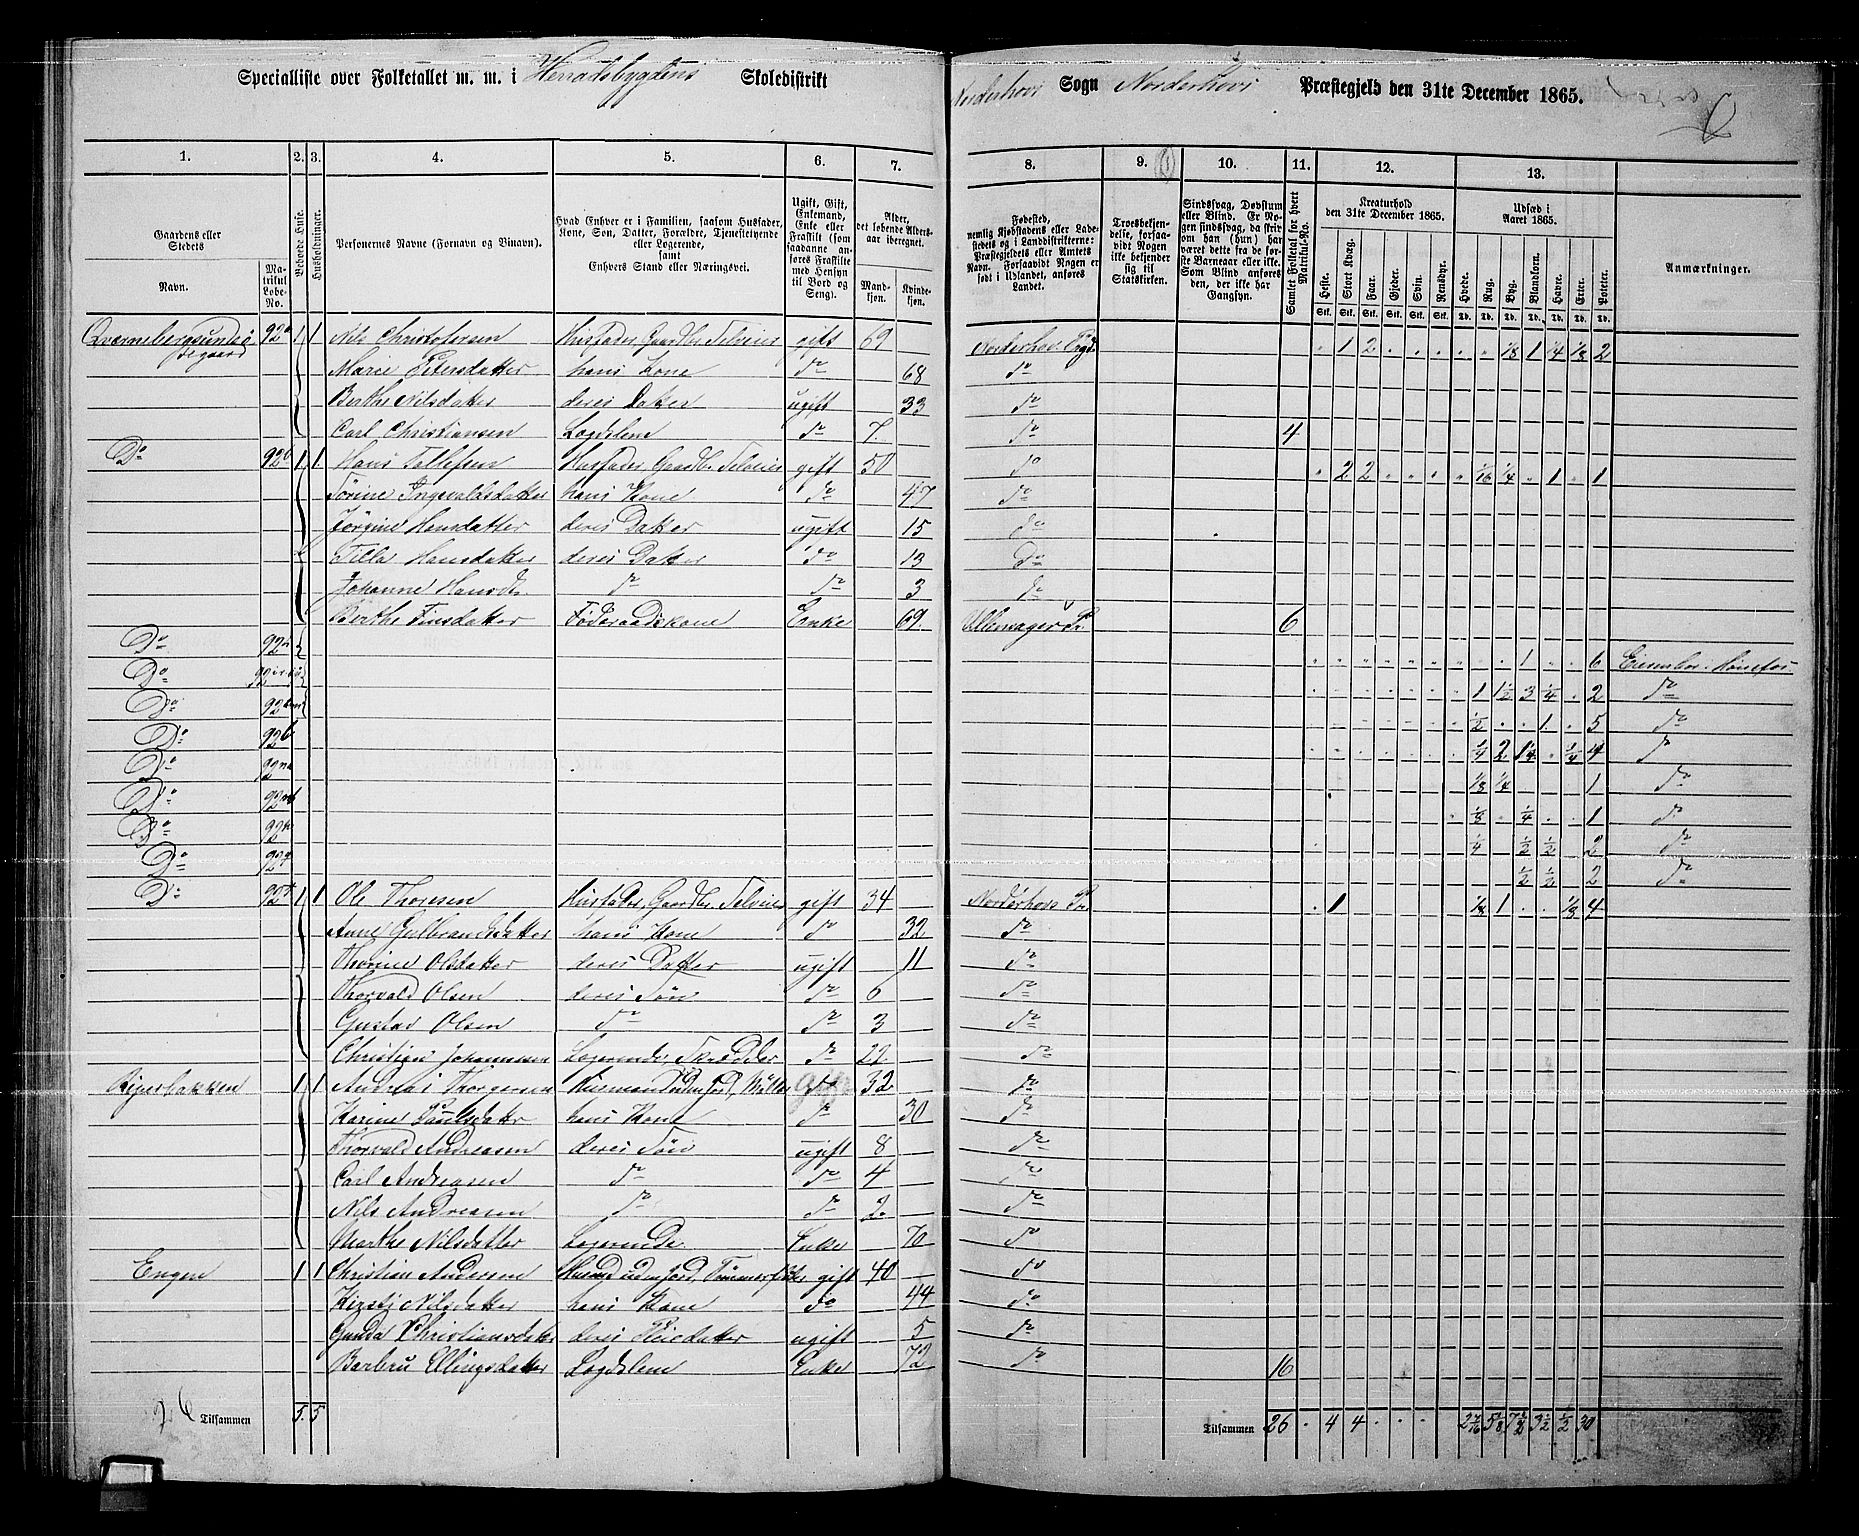 Specialliste over Folketallet m. m. i Heradsbygdens Skoledistrikt
Norderhovs Sogn Norderhovs Præstegjeld den 31te December 1865.
1. 2. 3. 4. 5. 6. 7.
8. 9. 10. 11. 12. 13.
Gaardens eller Stedets
Navn.
Matrikul Løbe-No.
Beboede Huse.
Husholdninger.
Personernes Navne (Fornavn og Binavn).
Hvad Enhver er i Familien, saasom Husfader, Kone, Søn, Datter, Forældre, Tjenestetyende eller Logerende, samt Enhvers Stand eller Næringsvei.
Ugift, Gift, Enkemand, Enke eller Fraskilt (som saadanne anføres Fraskilte med Hensyn til Bord og Seng).
Alder, det løbende Alders-aar iberegnet.
Mandkjøn. Kvindekjøn.
Fødested, nemlig Kjøbstadens eller Ladestedets og i Landdistrikterne: Præstegjeldets eller Amtets Navn. Forsaavidt Nogen er født i Udlandet, anføres Landet.
Troesbekjendelse, forsaavidt Nogen ikke bekjender sig til Statskirken.
Sindssvag, Døvstum eller Blind. Er Nogen sindssvag, da skrives om han (hun) har været dette fra de første Barneaar eller ikke. Som Blind anføres den, der ikke har Gangsyn.
Samlet Folketal for hvert Matrikul-No.
Kreaturhold den 31te December 1865.
Heste. Stort Kvæg. Faar. Gjeder. Svin. Rensdyr.
Udsæd i Aaret 1865.
Hvede. Rug. Byg. Blandkorn. Havre. Erter. Poteter.
Anmærkninger.
92a 1 1 Nils Christofersen Husfader, Gaardbr. Selveier gift 69 Norderhov Prgd. 1 2 1/8 1 1/4 1/8 2
Maree Petersdatter hans Kone do 68 do
Berthe Nilsdatter deres Datter ugift 33 do
Carl Christiansen Lægdslem do 7. do 4
Do 92b 1 1 Hans Tollefsen Husfader, Gaardbr. Selveier gift 50 do 2 2 1/16 1/4 1 1
Torine Ingvaldsdatter hans Kone do 47 do
Jørgine Hansdatter deres Datter ugift 15 do
Tilla Hansdatter deres Datter do 13 Do
Johanne Hansd. do do 3 do
Berthe Finsdatter Føderaadskone Enke 69. Ullensager Pr. 6
Do 92 1 6
Do 1 1/2 3 1/4 2 do
Do 92 1/2 1 5 do
Do 92 1/4 2 1/4 4
Do 92 1/8 1/4 1 do
Do 92 1/8 1/4 1 do
Do 92 1/4 1/2 1/2 2 do
Do 92 1/2 1/2 2 do
Do 92 1 1 Ole Thoresen Husfader, Gaardbr. Selveier gift 34 Norderhovs Pr. 1 1/8 1 1/8 4
Anne Gulbrandsdatter hans Kone do 32 do
Thorine Olsdatter deres Datter ugift 11 do
Thorvald Olsen deres Søn do 6 do
Gustav Olsen do do 3 do
Christian Johannesen Logerende, Skrædder do 22 do
1 1 Andreas Thorgersen Husmand uden Jord, Møller do 32 do
Karine Paulsdatter hans Kone do 30 do
Thorvald Andreasen deres Søn ugift 8 do
Carl Andreasen do do 4 do
Nils Andreasen do do 2 do
Marthe Nilsdatter Logerende Enke 70 do
Engen 1 1 Christian Andersen Husmd uden Jord, gift 40 do
Kirsti Nilsdatter hans Kone do 44 do
Gunda Christiansdatter deres Pleiedatter ugift 5 do
Barbru Ellingsdatter Lægdslem Enke 72 do 16
26 Tilsammen 5. 5
Tilsammen 26 4 4 2 7/16 5 1/8 7 1/2 3 1/2 1/2 30